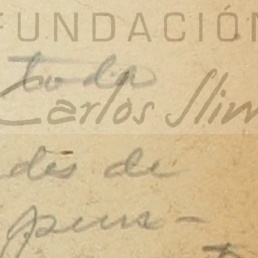 FUNDACIÓN
toda
Carlos Slim
des de
pens-